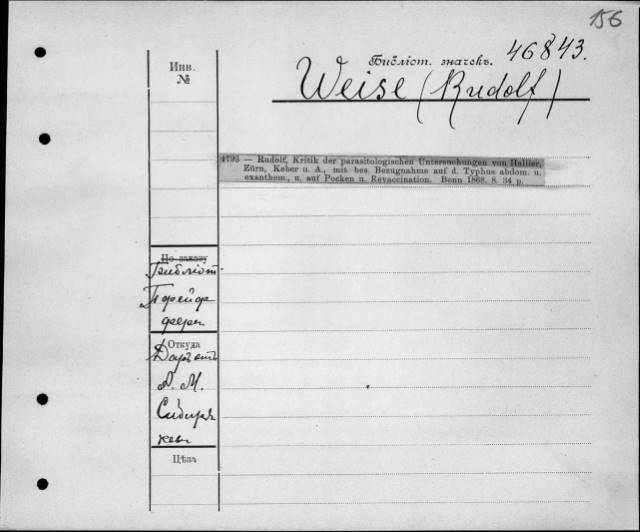 156
Библіот. значекъ. 46843.
Инв.
№
Weise (Rudolf)
4793 — Rudolf, Kritik der parasitologischen Untersuchungen von Hallier,
Zürn, Keber u. A., mit bes. Bezugnahme auf d. Typhus abdom. u.
exanthem., u. auf Pocken u. Revaccination. Bonn 1868. 8. 34 p.
По заказу
Библіот.
Пфейф
фера
Откуда
Даръ отъ
А. М.
Сибиря
кова
Цѣна